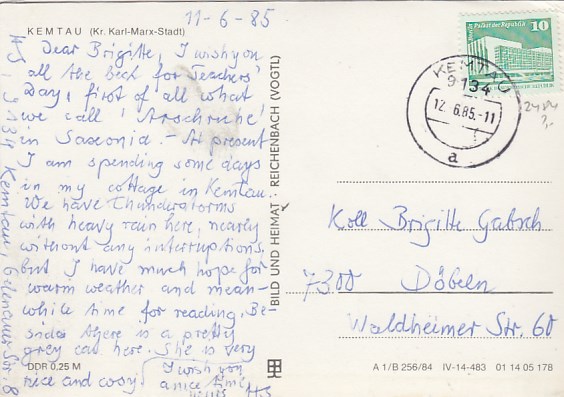 11-6-85
KEMTAU (Kr. Karl-Marx-Stadt)
Dear Brigitte, I wish you
all the best for Teachers'
Day, first of all what
we call 'Arschruhe'
in Saxonia. - At present
I am spending some days
in my cottage in Kemtau.
We have thunderstorms
with heavy rain here, nearly
without any interruptions.
but I have much hope for
warm weather and mean-
while time for reading. Be-
sides there is a pretty
grey cat here. She is very
nice and cosy. I wish you
a nice time,
yours HS
HS, 9134 Kemtau, Gelenauer Str. 8
DDR 0,25 M
BILD UND HEIMAT REICHENBACH (VOGTL)
Palast der Republik
10
KEMTAU
9134
12.6.85.-11
a
Koll Brigitte Gabsch
7300 Döbeln
Waldheimer Str. 60
A 1/B 256/84 IV-14-483 01 14 05 178